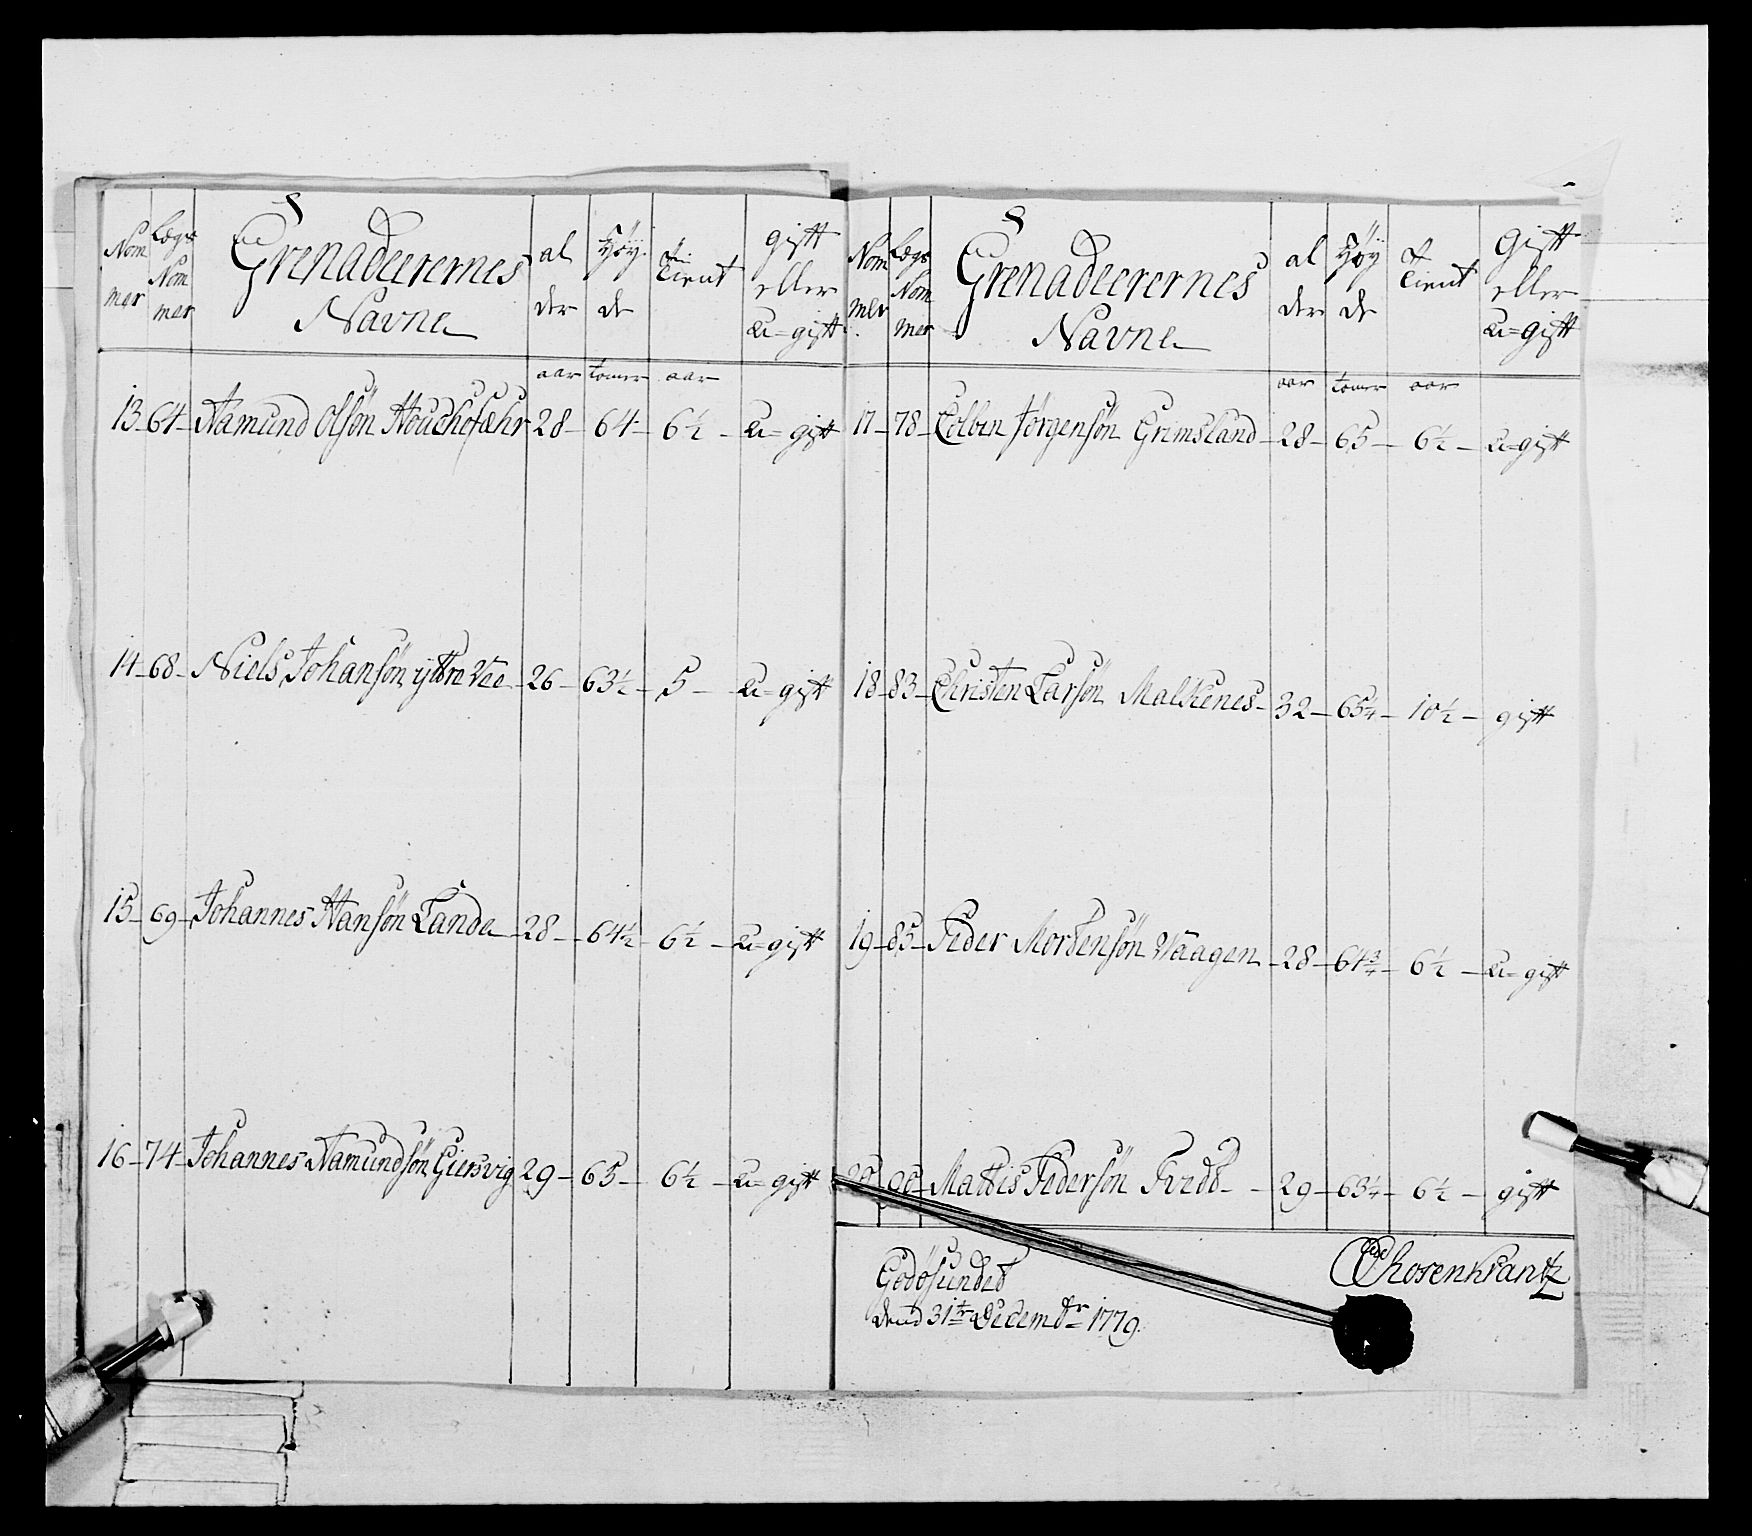 Nom mer | Lægs Nom mer | Grenadeerernes Navne | al der | Høy de | tient | gift eller u=gift
aar | tomer | aar
13 – 64 – Aamund Olsøn – 28 – 64 – 6½ – u=gift
14 – 68 – Niels Johansøn ÿttre Vee – 26 – 63½ – 5 – u=gift
15 – 69 – Johannes Hansøn Lande – 28 – 64½ – 6½ – u=gift
16 – 74 – Johannes Aamundsøn Giersvig 29 – 65 – 6½ – u=gift
Nom mer | Lægs Nom mer | Grenadeerernes Navne | al der | Høy de | tient | Gift eller u=gift
aar | tomer | aar
17 – 78 – Colben Jørgensøn Grimsland – 28 – 65 – 6½ – u=gift
18 – 83 – Christen Larsøn Malkenes – 32 – 65¼ – 10½ – gift
19 – 85 – Peder Mortensøn Vaagen – 28 – 64¾ – 6½ – u=gift
20 – 90 – Mattis Pedersøn Tvedt – 29 – 63¼ – 6½ – gift
Godøsundet
dend 31te Decembr 1779.
Rosenkrantz